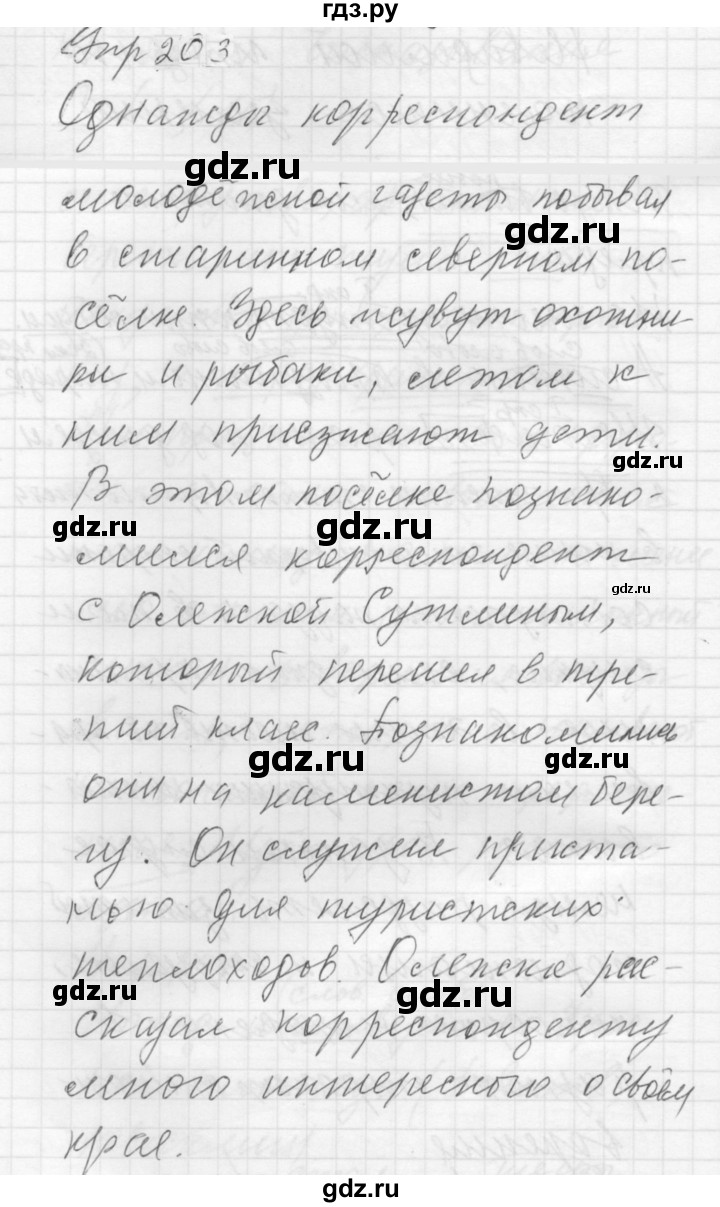 гдз.ру
Упр 203
Однажды корреспондент
gdz.ru
молодёжной газеты побывал
gdz.ru
в старинном северном по-
сёлке. Здесь живут охотни-
ки и рыбаки, летом к
ним приезжают дети.
gdz.ru
В этом посёлке познако-
gdz.ru gdz.ru
мился корреспондент
gdz.ru
с Олежкой Сутлиным,
который перешел в тре-
тий класс. Познакомились
gdz.ru gdz.ru
они на каменистом бере-
гу. Он служил приста-
нью для туристских
теплоходов. Олежка рас-
gdz.ru gdz.ru
сказал корреспонденту
много интересного о своём
крае.
gdz.ru